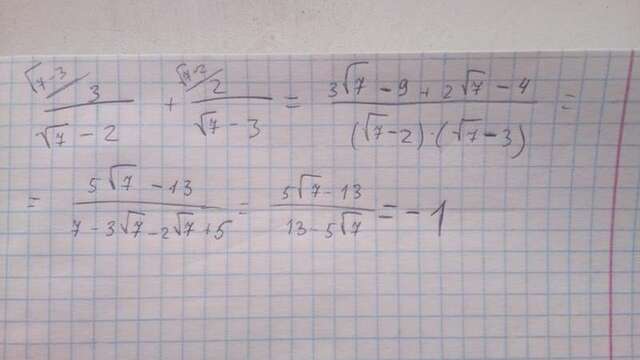 √7-3/ 3/(√7 - 2) + √7-2/ 2/(√7 - 3) = (3√7 - 9 + 2√7 - 4)/((√7-2)·(√7-3)) =
= (5√7 - 13)/(7 - 3√7 - 2√7 + 5) = (5√7 - 13)/(13 - 5√7) = - 1